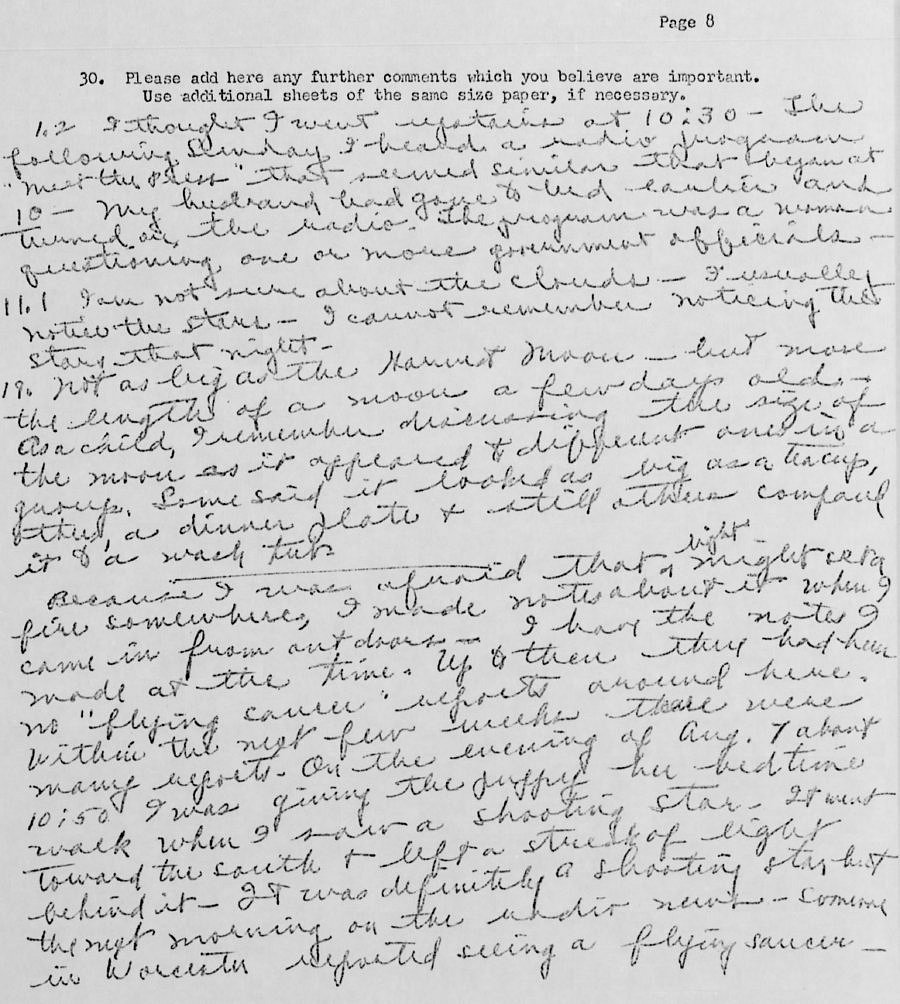 Page 8
30. Please add here any further comments which you believe are important.
Use additional sheets of the same size paper, if necessary.
1.2 I thought I went upstairs at 10:30 - The
following Sunday I heard a radio program
"Meet the Press" that seemed similar that began at
10 - My husband had gone to bed earlier and
turned on the radio. The program was a woman
questioning one or more government officials -
11.1 I am not sure about the clouds - I usually
notice the stars - I cannot remember noticing the
stars that night -
19. Not as big as the Harvest Moon - but more
the length of a moon a few days old. -
As a child, I remember discussing the size of
the moon as it appeared to different ones in a
group. Some said it looked as big as a teacup,
others, a dinner plate & still others compared
it to a wash tub.
Because I was afraid that light might set a
fire somewhere, I made notes about it when I
came in from outdoors - I have the notes I
made at the time. Up to then there had been
no "flying saucer" reports around here.
Within the next few weeks there were
many reports. On the evening of Aug. 7 about
10:50 I was giving the puppy her bedtime
walk when I saw a shooting star. It went
toward the south & left a streak of light
behind it - It was definitely a shooting star, but
the next morning on the radio news - someone
in Worcester reported seeing a flying saucer -